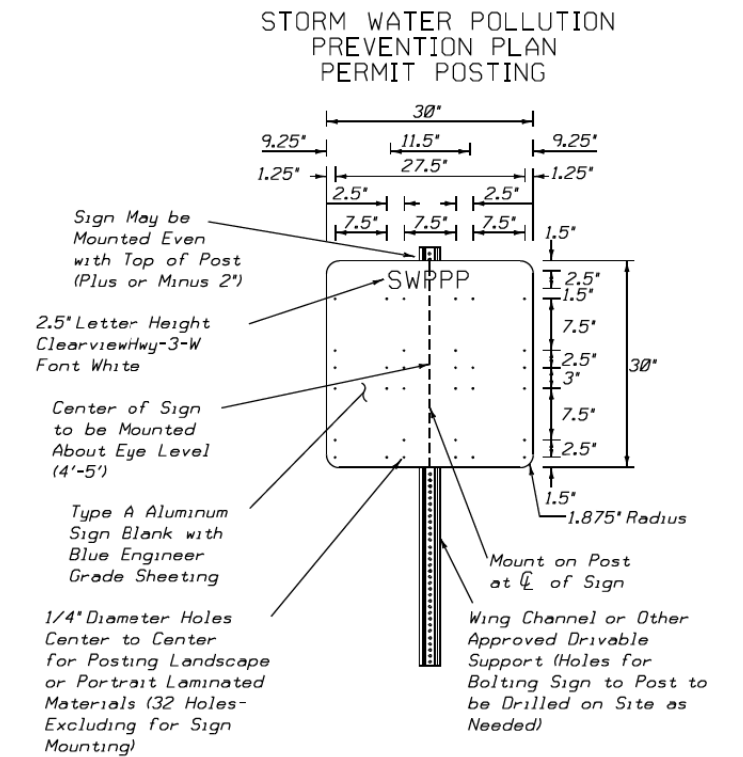 STORM WATER POLLUTION
PREVENTION PLAN
PERMIT POSTING
30"
9.25" 11.5" 9.25"
1.25" 27.5" 1.25"
2.5" 2.5"
7.5" 7.5" 7.5"
Sign May be
Mounted Even
with Top of Post
(Plus or Minus 2")
2.5" Letter Height
ClearviewHwy-3-W
Font White
Center of Sign
to be Mounted
About Eye Level
(4'-5')
Type A Aluminum
Sign Blank with
Blue Engineer
Grade Sheeting
1/4" Diameter Holes
Center to Center
for Posting Landscape
or Portrait Laminated
Materials (32 Holes-
Excluding for Sign
Mounting)
SWPPP
1.5"
2.5"
1.5"
7.5"
2.5"
3"
7.5"
2.5"
1.5"
30"
1.875" Radius
Mount on Post
at ℄ of Sign
Wing Channel or Other
Approved Drivable
Support (Holes for
Bolting Sign to Post to
be Drilled on Site as
Needed)